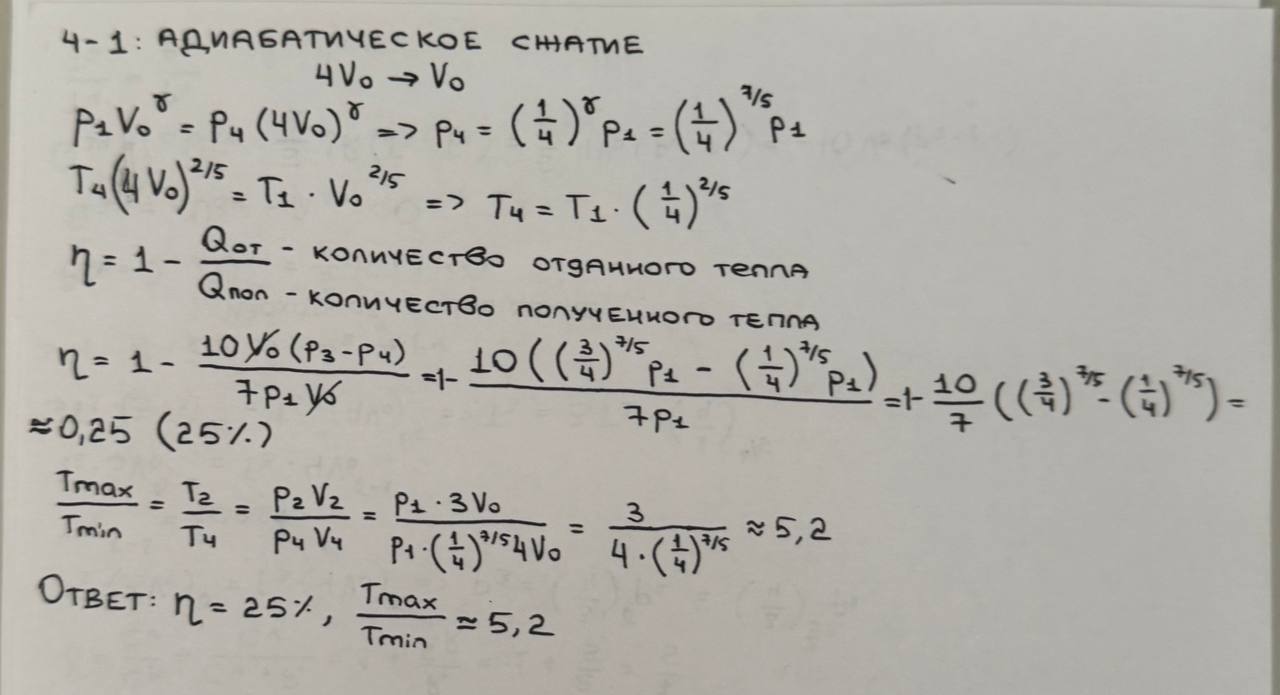 4-1: АДИАБАТИЧЕСКОЕ СЖАТИЕ
4V₀ → V₀
P₁V₀^γ = P₄(4V₀)^γ => P₄ = (1/4)^γ P₁ = (1/4)^7/5 P₁
T₄(4V₀)^2/5 = T₁ · V₀^2/5 => T₄ = T₁ · (1/4)^2/5
η = 1 - Qот/Qпол
Qот - КОЛИЧЕСТВО ОТДАННОГО ТЕПЛА
Qпол - КОЛИЧЕСТВО ПОЛУЧЕННОГО ТЕПЛА
η = 1 - 10V₀(P₃-P₄)/7P₁V₀ = 1- 10((3/4)^7/5 P₁ - (1/4)^7/5 P₁)/7P₁ = 1- 10/7 ((3/4)^7/5 - (1/4)^7/5) =
≈ 0,25 (25%)
Tmax/Tmin = T₂/T₄ = P₂V₂/P₄V₄ = P₁ · 3V₀/P₁·(1/4)^7/5 4V₀ = 3/4·(1/4)^7/5 ≈ 5,2
ОТВЕТ: η = 25%, Tmax/Tmin ≈ 5,2